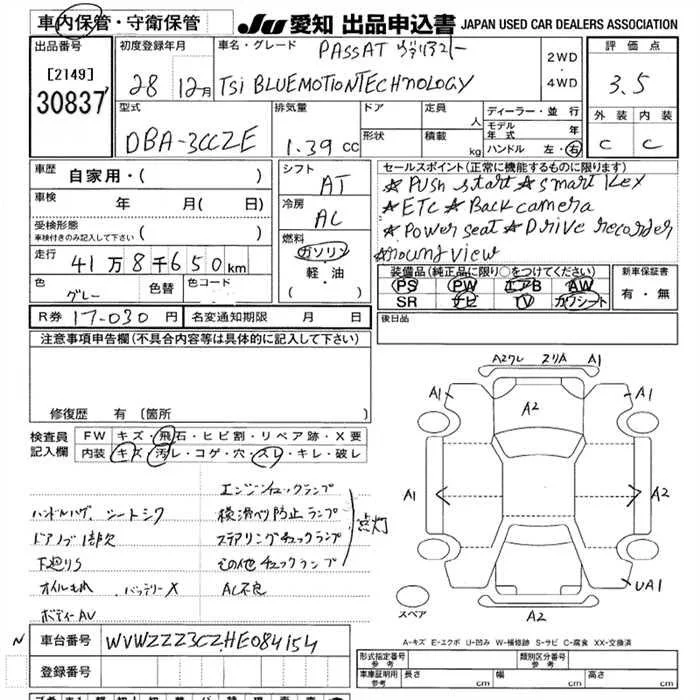 車内保管・守衛保管 JU 愛知 出品申込書 JAPAN USED CAR DEALERS ASSOCIATION
出品番号 [2149] 30837
初度登録年月 28 12月
車名・グレード PASSAT ヴァリアント
TSi BLUEMOTIONTECHNOLOGY
2WD
・
4WD
評価点 3.5
外装 C 内装 C
型式 DBA-3CCZE
排気量 1.39 cc
ドア 定員 人
形状 積載 kg
ディーラー・並行
モデル年式 年
ハンドル 左・右
車歴 自家用・( )
車検 年 月( 日)
受検形態 車検付きのみ記入して下さい ( )
走行 41万8千650km
色 グレー 色替 色コード
シフト AT
冷房 AC
燃料 ガソリン
軽・油
セールスポイント(正常に機能するものに限ります)
☆Push start ☆smart Key
☆ETC ☆Back camera
☆Power seat ☆Drive recorder
☆round view
装備品(純正品に限り○をつけてください) 新車保証書
PS PW エアB AW 有・無
SR ナビ TV カワシート
R券 17-030 円 名変通知期限 月 日
後日品
注意事項申告欄(不具合内容等は具体的に記入して下さい)
修復歴 有 〔箇所
検査員記入欄 FW キズ・飛石・ヒビ割・リペア跡・X要
内装 キズ・汚レ・コゲ・穴・スレ・キレ・破レ
エンジンチェックランプ
ハンドルハゲ、シートシワ 横滑り防止ランプ 点灯
ドアノブ1部欠 ステアリングチェックランプ
下廻りS その他チェックランプ
オイルもれ バッテリーX AC不良
ボディーAV
A1 A2
A1 A1
A2
A1 A2
UA1
A2
スペア
A-キズ E-エクボ U-凹み W-補修跡 S-サビ C-腐食 XX-交換済
N 車台番号 WVWZZZ3CZHE084154
登録番号
形式指定番号 参考 類別区分番号 参考
車庫証明用 参考 長さ cm 幅 cm 高さ cm